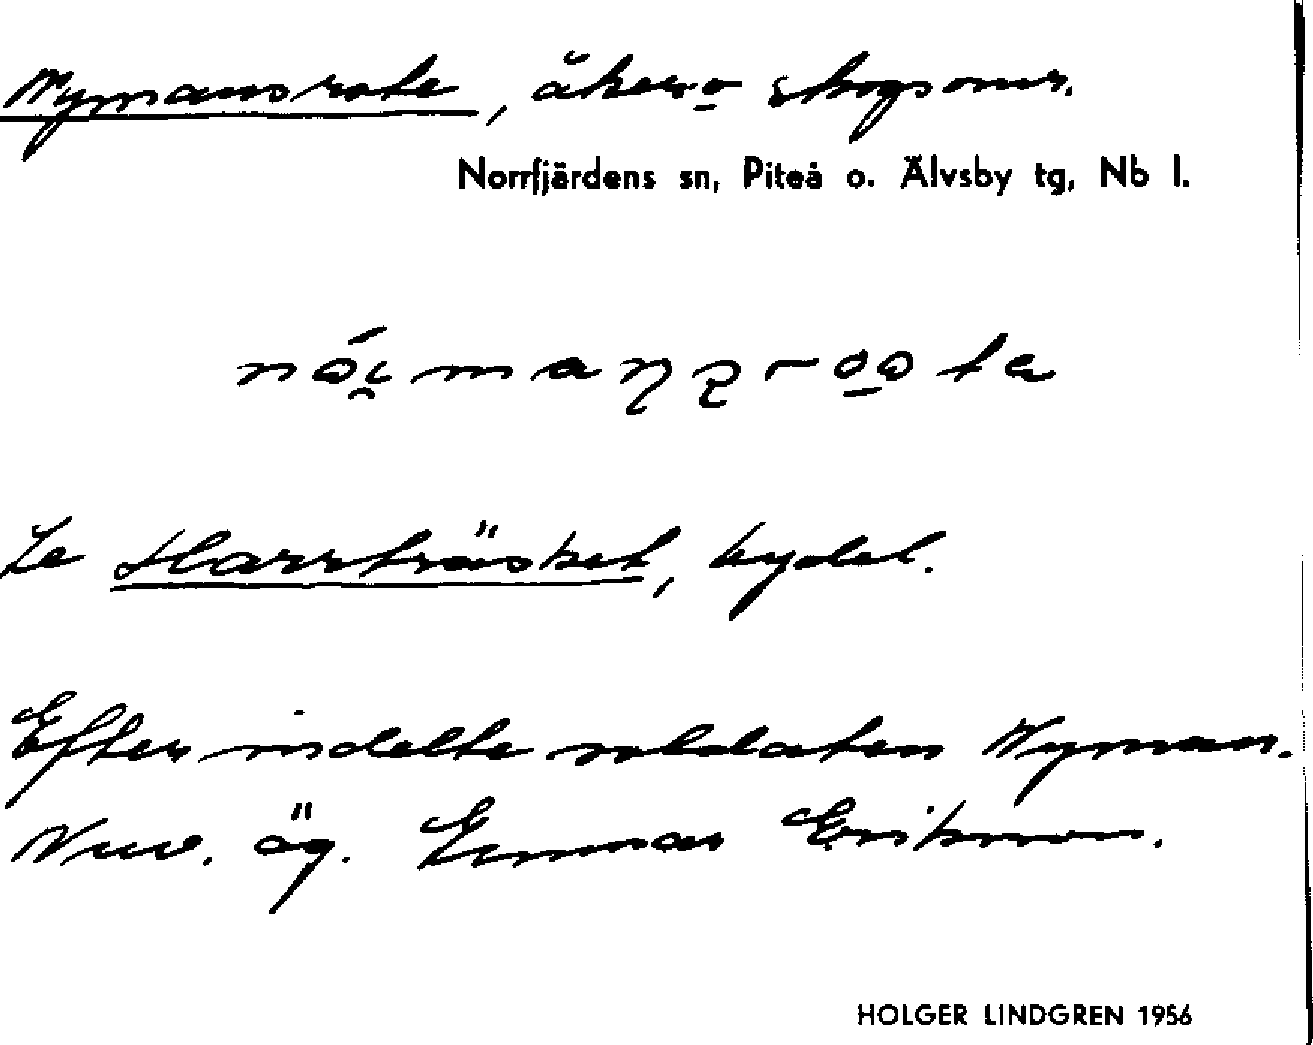 Nymansrote, åker o skogsomr.
Norrfjärdens sn, Piteå o. Älvsby tg, Nb l.
Se Harrträsket, bydel.
Efter indelte soldaten Nyman.
Nuv. äg. Erikson.
HOLGER LINDGREN 1956